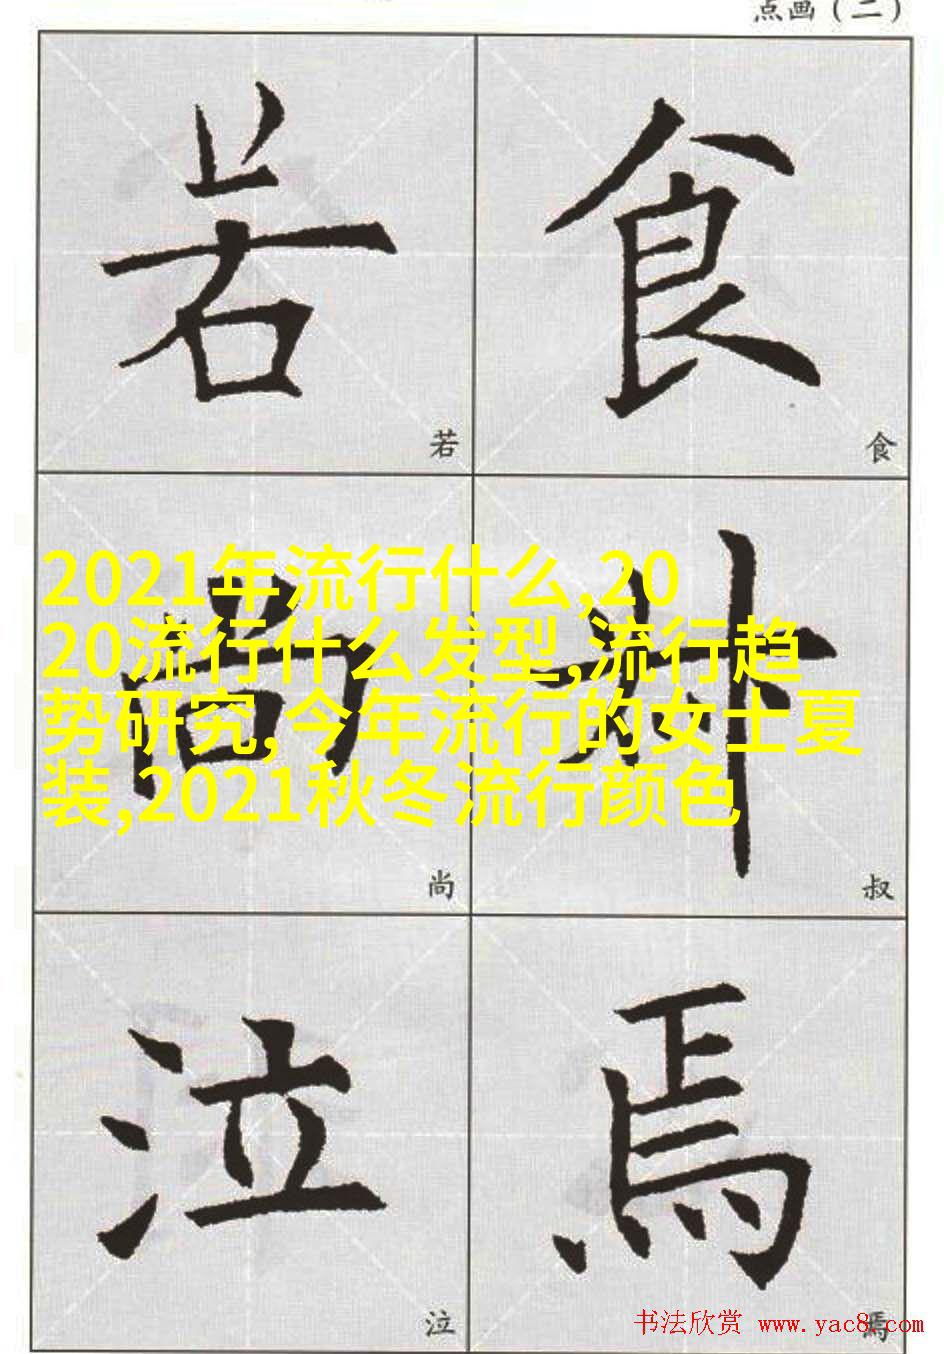 点画（二）
若 食
若 食
2021年流行什么,20
20流行什么发型,流行趋
势研究,今年流行的女士夏
装,2021秋冬流行颜色
尚 叔
尚 叔
泣 焉
泣 焉
书法欣赏 www.yac8.com